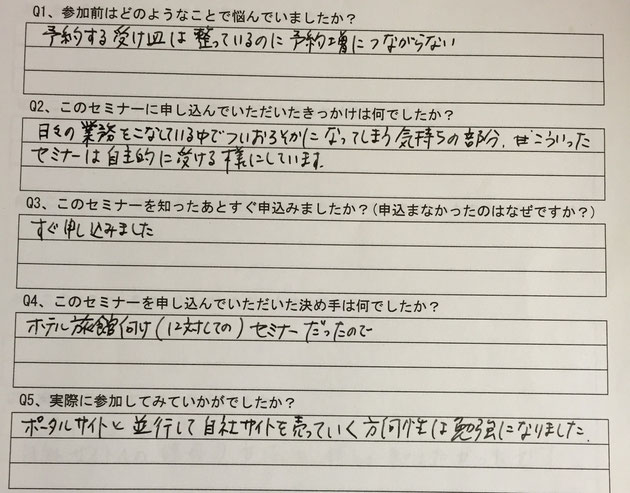 Q1、参加前はどのようなことで悩んでいましたか？
予約する受け皿は整っているのに予約増につながらない
Q2、このセミナーに申し込んでいただいたきっかけは何でしたか？
日々の業務をこなしている中でついおろそかになってしまう気持ちの部分、こういった
セミナーは自主的に受ける様にしています。
Q3、このセミナーを知ったあとすぐ申込みましたか？（申込まなかったのはなぜですか？）
すぐ申し込みました
Q4、このセミナーを申し込んでいただいた決め手は何でしたか？
ホテル旅館向け（に対しての）セミナーだったので
Q5、実際に参加してみていかがでしたか？
ポータルサイトと並行して自社サイトを売っていく方向性は勉強になりました。